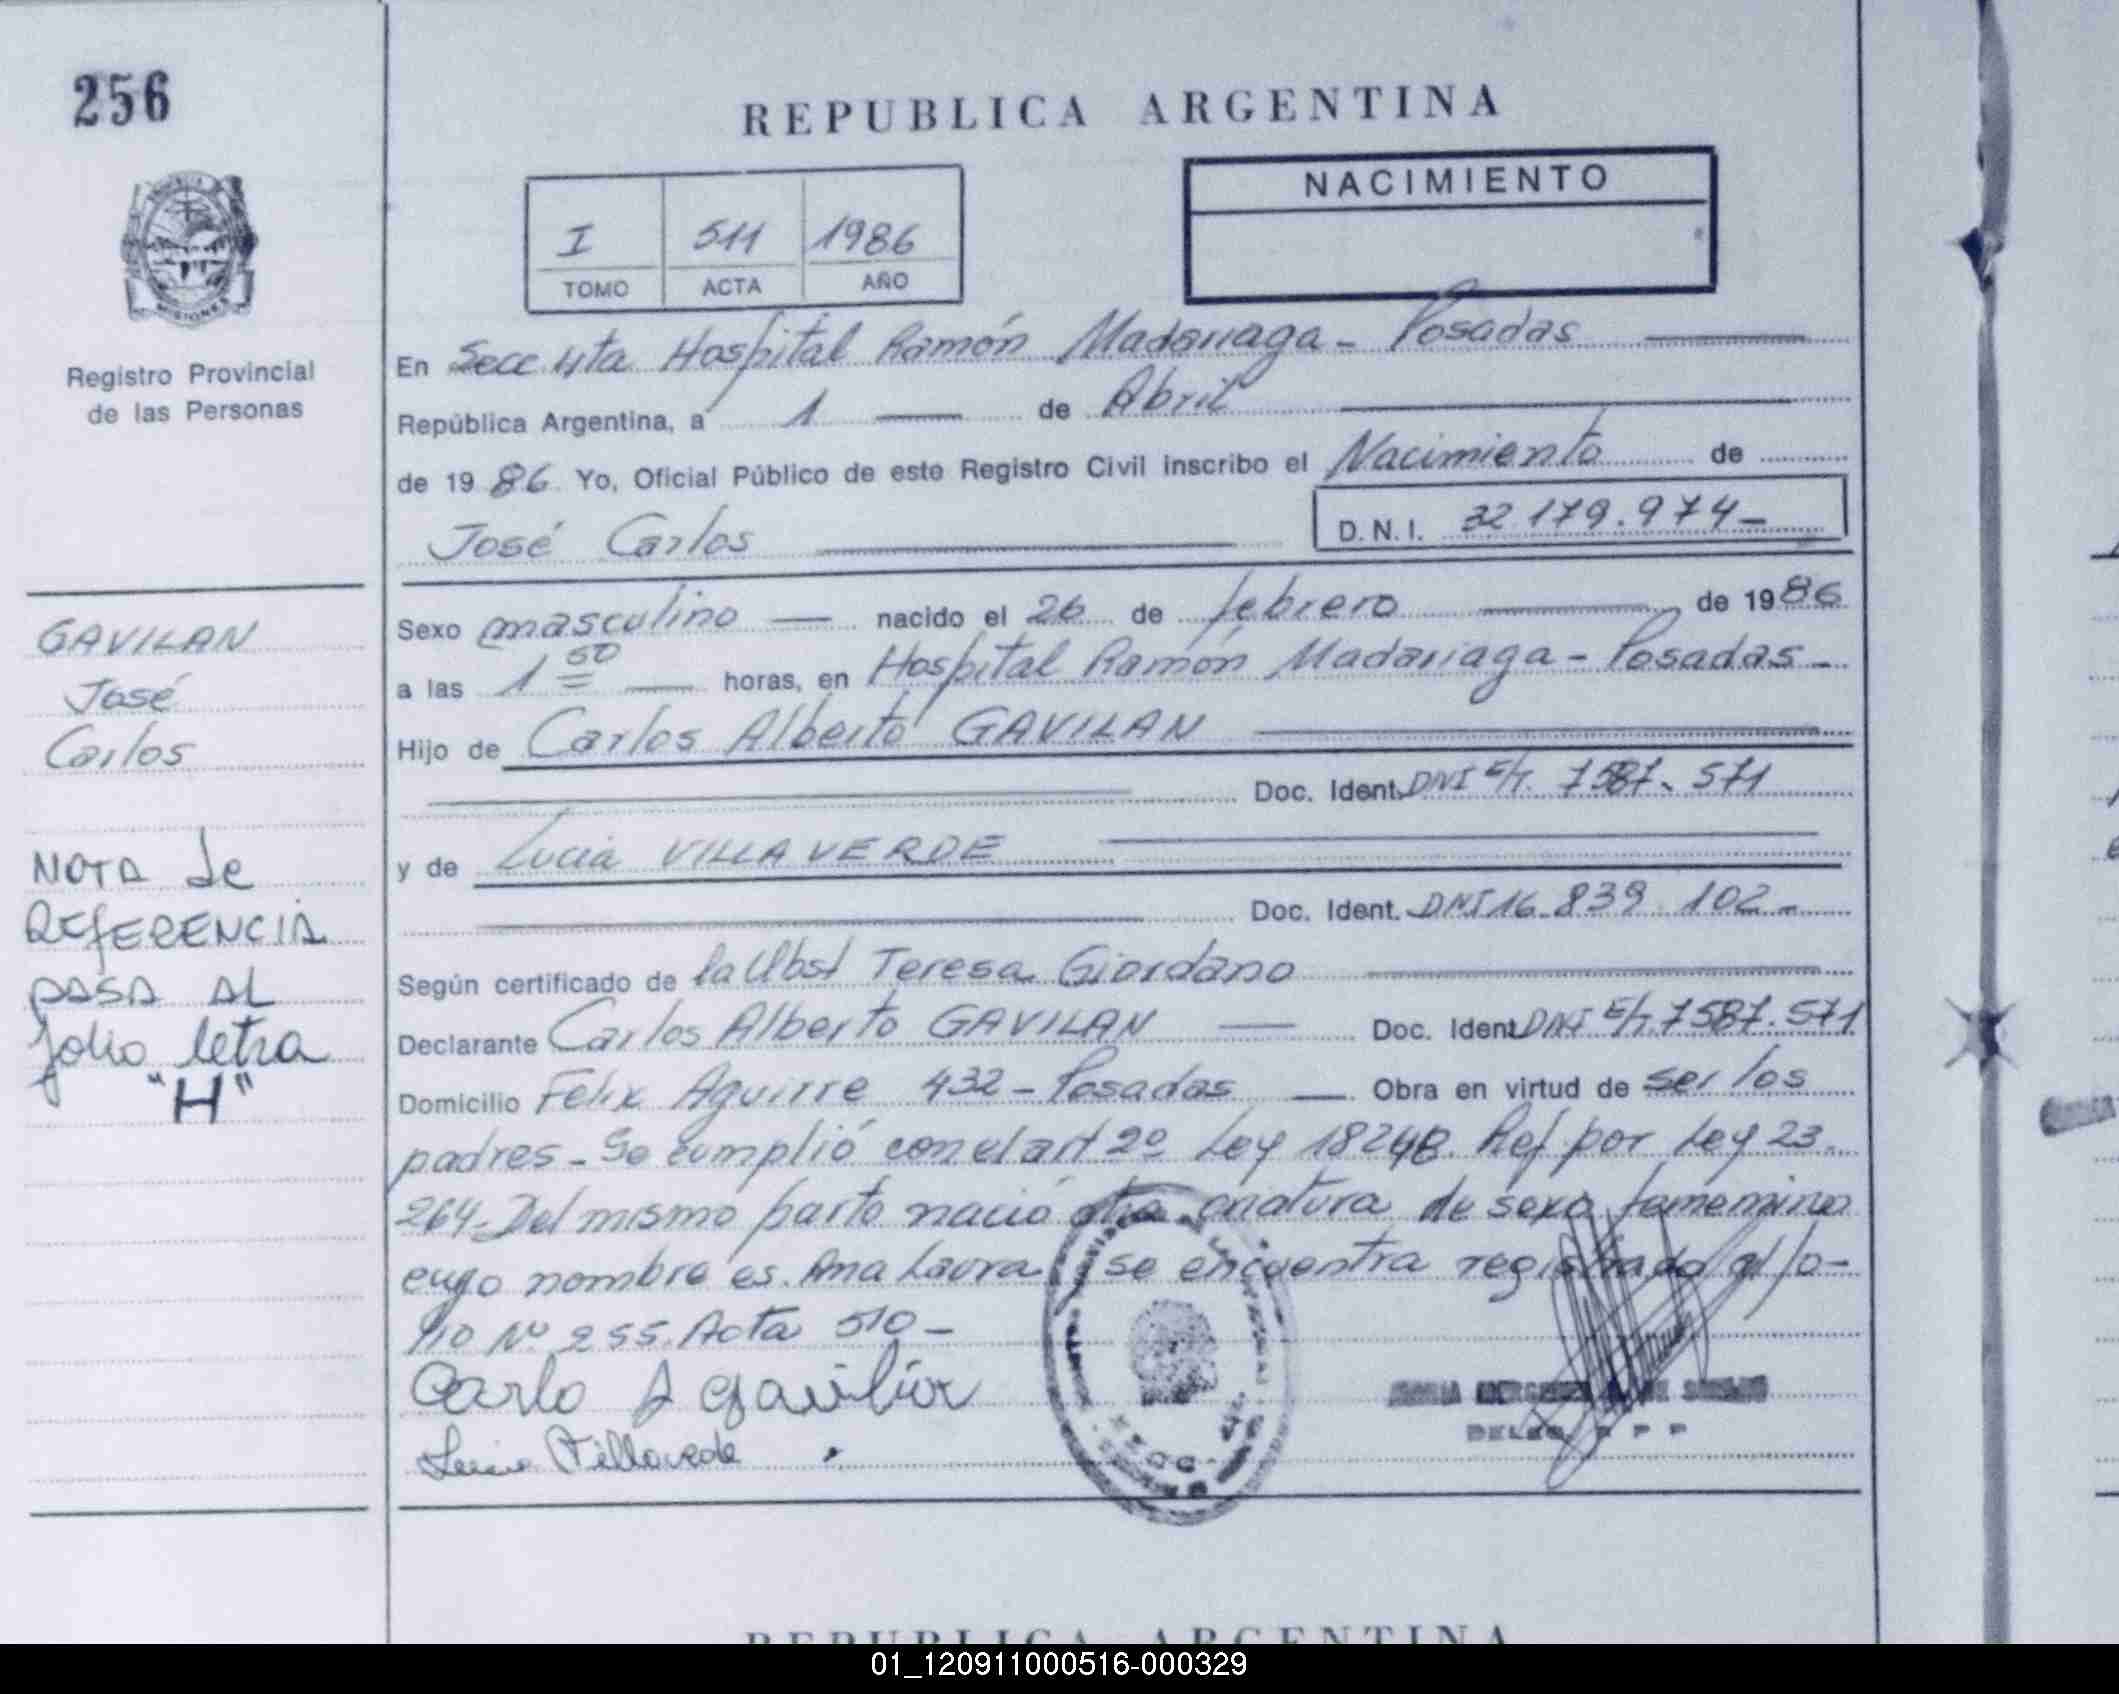 256
REPUBLICA ARGENTINA
NACIMIENTO
I 511 1986
TOMO ACTA AÑO
MISIONES
Registro Provincial
de las Personas
En Secc 4ta Hospital Ramón Madariaga - Posadas
República Argentina, a 1 de Abril
de 1986 Yo, Oficial Público de este Registro Civil inscribo el Nacimiento de
José Carlos D.N.I. 32.179.974-
GAVILAN
José
Carlos
NOTA de
REFERENCIA
PASA AL
folio letra
"H"
Sexo masculino nacido el 26 de febrero de 1986
a las 1 50 horas, en Hospital Ramón Madariaga - Posadas -
Hijo de Carlos Alberto GAVILAN
Doc. Ident. DNI E/T. 7587.571
y de Lucia VILLAVERDE
Doc. Ident. DNI 16.839.102-
Según certificado de la Obst Teresa Giordano
Declarante Carlos Alberto GAVILAN Doc. Ident DNI E/T 7587.571
Domicilio Felix Aguirre 432 - Posadas Obra en virtud de ser los
padres - Se cumplió con el art 2º Ley 18248. Ref por Ley 23.
264. Del mismo parto nació otra criatura de sexo femenino
cuyo nombre es. Ana Laura y se encuentra registrada al fo-
lio Nº 255. Acta 510 -
Carlo A Gavilan
Lucia Villaverde
REPUBLICA ARGENTINA
01_120911000516-000329